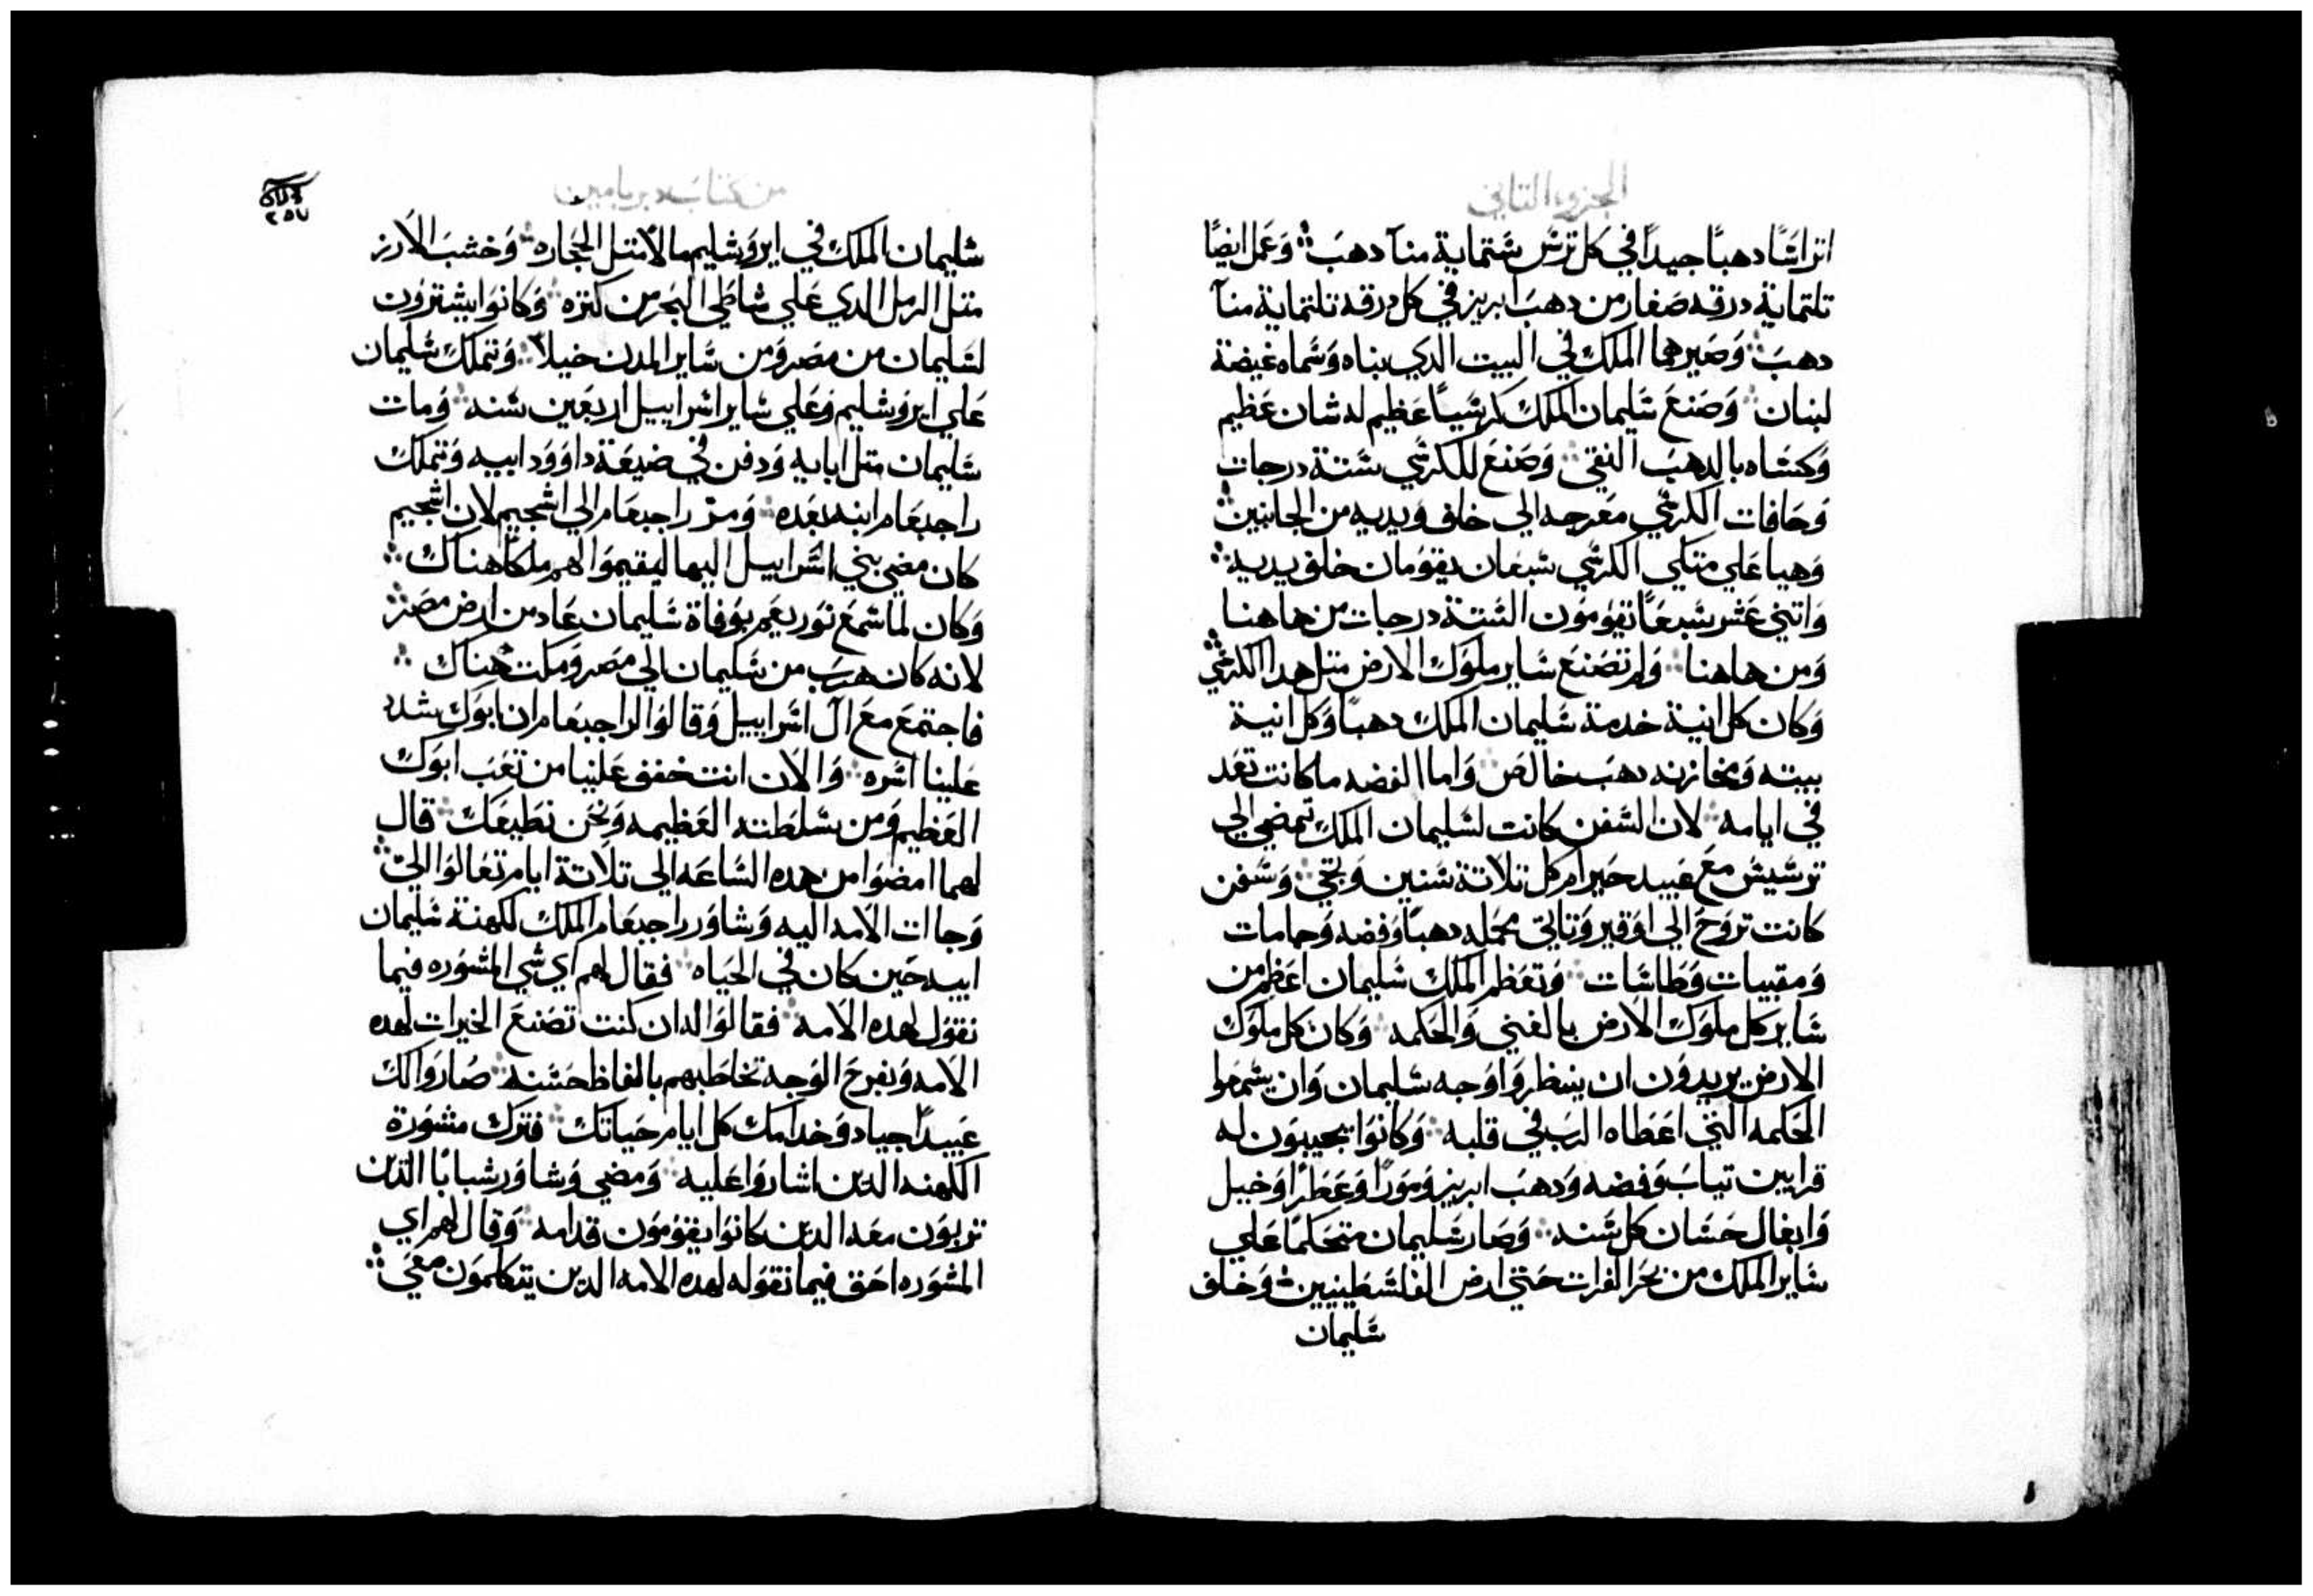 الجزو التاني
اتراسًا دهبًا جيدًا في كل ترس ستماية منآ دهبَ ۞ وَعمل ايضًا
تلتماية درقه صَغار من دهبَ ابريز في كل درقه تلتماية منآ
دهبَ ۞ وَصَيرها الملك في البيت الدي بناه وَسَماه غيضة
لبنان ۞ وَصَنعَ سَليمان الملك كرسَيًا عَظيم له شان عَظيم
وَكسَاه بالدهبَ النقي ۞ وَصَنعَ للكرسَي سَتة درجات
وَحَافات الكرسَي مَعرجه الي خلف وَيديه من الجانبين ۞
وَهيا عَلي متكي الكرسَي سَبعَان يقوَمان خلف يديه ۞
وَاتني عَشر سَبعَا يقوَموَن السَتة درجات من هاهنا
وَمن هاهنا ۞ وَلم تصَنعَ سَاير ملوَك الارض متل هدا الكرسَي
وَكان كل انية خدمة سَليمان الملك دهبًا وَكل انية
بيته وَمخازنه دهبَ خالصَ ۞ وَاما الفضه ما كانت تعَد
في ايامه ۞ لان السَفن كانت لسَليمان الملك تمضي الي
ترسَيسَ معَ عَبيد حَيرام كل تلاتة سَنين وَتجي ۞ وَسَفن
كانت تروَحَ الي اوَقير وَتاتي محَمله دهبًا وَفضه وَحمامات
وَمقببات وَطاسَات ۞ وَتعَظم الملك سَليمان اعَظم من
سَاير كل ملوَك الارض بالغني وَالحَكمه ۞ وَكان كل ملوَك
الارض يريدوَن ان ينظروَا وَجه سَليمان وَان يسَمعَوا
الحَكمه التي اعَطاه الربَ في قلبه ۞ وَكانوَا يجيبوَن له
قرابين تيابَ وَفضه وَدهبَ ابريز وَموَرًا وَعَطرًا وَخيل
وَابغال حَسَان كل سَنه ۞ وَصَار سَليمان متحَكمًا عَلي
سَاير الملك من بحَر الفرات حَتي ارض الفلسَطينيين ۞ وَخلف
سَليمان
من كتابَ دبريامين
٢٥٧
سَليمان الملك في ايروَشليم مالاً متل الحَجاره ۞ وَخشبَ الارز
متل الرمل الدي عَلي شاطي البحَر من كتره ۞ وَكانوَا يشتروَن
لسَليمان من مصَر وَمن سَاير المدن خيلاً ۞ وَتملك سَليمان
عَلي ايروَشليم وَعَلي سَاير اسَراييل اربعَين سَنه ۞ وَمات
سَليمان متل ابايه وَدفن في ضيعَة داوَوَد ابيه وَتملك
راجبعَام ابنه بعَده ۞ وَمرّ راجبعَام الي اشجيم لان اشجيم
كان مضي بني اسَراييل اليها ليقيموَا لهم ملكًا هناك ۞
وَكان لما سَمعَ نوَريعَم بوَفاة سَليمان عَاد من ارض مصَر ۞
لانه كان هربَ من سَليمان الي مصَر وَمكت هناك ۞
فاجتمعَ معَ آل اسَراييل وَقالوَا لراجبعَام ان ابوَك شدد
عَلينا اسَره ۞ وَالآن انت خفف عَلينا من تعَبَ ابوَك
العَظيم وَمن سَلطَنته العَظيمه وَنحَن نطيعَك ۞ قال
لهما امضوَا من هده السَاعَه الي تلاتة ايام تعَالوَا اليّ ۞
وَجاات الامه اليه وَشاوَر راجبعَام الملك لكهنة سَليمان
ابيه حَين كان في الحَياه ۞ فقال لهم اي شي المشوَره فيما
نقوَل لهده الامه ۞ فقالوَا له ان كنت تصَنعَ الخيرات لهده
الامه وَبفرحَ الوَجه تخاطَبهم بالفاظ حَسَنه ۞ صَاروَا لك
عَبيدًا جياد وَخدامك كل ايام حَياتك ۞ فترك مشوَرة
الكهنه الدين اشاروَا عَليه ۞ وَمضي وَشاوَر شبابًا الدين
تربوَن معَه الدين كانوَا يقوَموَن قدامه ۞ وَقال لهم اي
المشوَره احَق فيما نقوَله لهده الامه الدين يتكلموَن معَي ۞